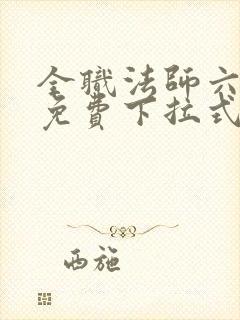 全職法師六
免費下拉式
西施